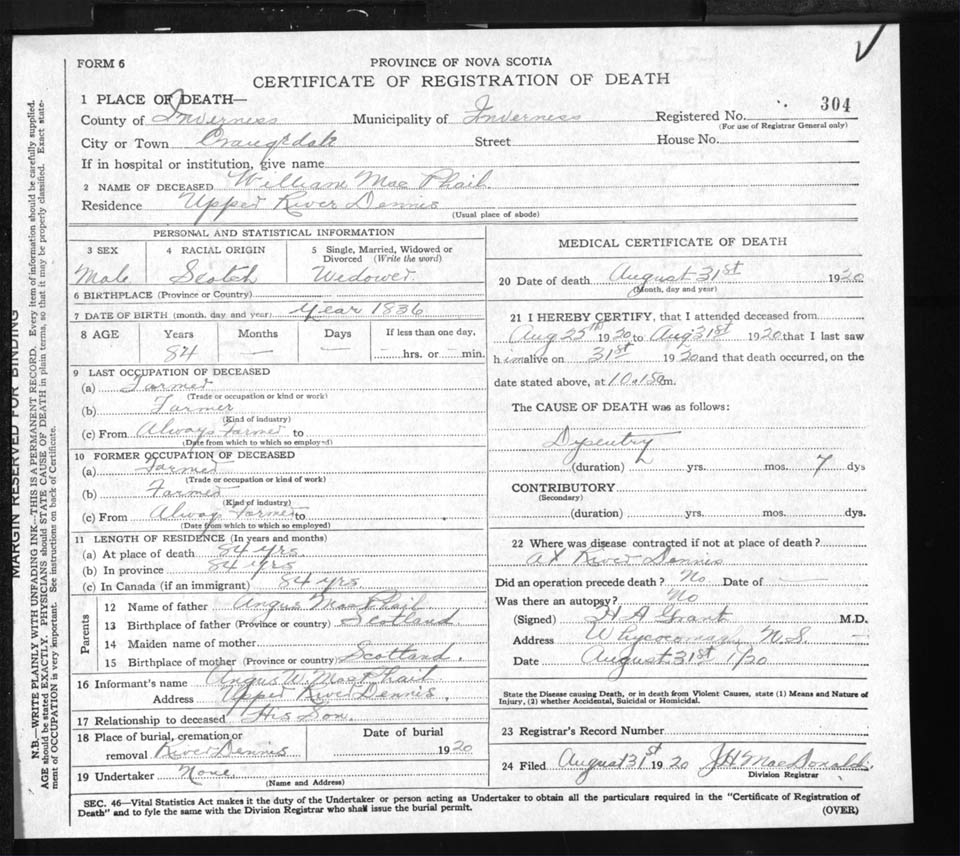 FORM 6
PROVINCE OF NOVA SCOTIA
CERTIFICATE OF REGISTRATION OF DEATH
1 PLACE OF DEATH—
304
County of Inverness Municipality of Inverness Registered No.
(For use of Registrar General only)
City or Town Street House No.
If in hospital or institution, give name
2 NAME OF DECEASED William MacPhail
Residence Upper River Dennis
(Usual place of abode)
PERSONAL AND STATISTICAL INFORMATION
3 SEX 4 RACIAL ORIGIN 5 Single, Married, Widowed or Divorced (Write the word)
Male Scotch Widower
6 BIRTHPLACE (Province or Country)
7 DATE OF BIRTH (month, day and year) Year 1836
8 AGE Years Months Days If less than one day,
84 — — — hrs. or — min.
9 LAST OCCUPATION OF DECEASED
(a) Farmer
(Trade or occupation or kind or work)
(b) Farmer
(Kind of industry)
(c) From Always Farmer to
(Date from which to which so employed)
10 FORMER OCCUPATION OF DECEASED
(a) Farmer
(Trade or occupation or kind of work)
(b) Farmer
(Kind of industry)
(c) From Alway Farmer to
(Date from which to which so employed)
11 LENGTH OF RESIDENCE (In years and months)
(a) At place of death 84 yrs
(b) In province 84 yrs
(c) In Canada (if an immigrant) 84 yrs.
Parents
12 Name of father Angus MacPhail
13 Birthplace of father (Province or country) Scotland.
14 Maiden name of mother
15 Birthplace of mother (Province or country) Scotland.
16 Informant's name Angus W. MacPhail
Address Upper River Dennis.
17 Relationship to deceased His Son.
18 Place of burial, cremation or Date of burial
removal River Dennis 1920
19 Undertaker None
(Name and Address)
MEDICAL CERTIFICATE OF DEATH
20 Date of death August 31st 1920
(Month, day and year)
21 I HEREBY CERTIFY, that I attended deceased from
Aug 25th 1920 to Aug 31st 1920 that I last saw
him alive on 31st 1920 and that death occurred, on the
date stated above, at 10.15 a m.
The CAUSE OF DEATH was as follows:
Dysentry
(duration) yrs. mos. 7 dys
CONTRIBUTORY
(Secondary)
(duration) yrs. mos. dys.
22 Where was disease contracted if not at place of death?
at River Dennis
Did an operation precede death? No Date of —
Was there an autopsy? No
(Signed) H A Grant M.D.
Address Whycocomagh N.S.
Date August 31st 1920
State the Disease causing Death, or in death from Violent Causes, state (1) Means and Nature of
Injury, (2) whether Accidental, Suicidal or Homicidal.
23 Registrar's Record Number
24 Filed August 31st 1920 J H MacDonald.
Division Registrar
SEC. 46—Vital Statistics Act makes it the duty of the Undertaker or person acting as Undertaker to obtain all the particulars required in the "Certificate of Registration of
Death" and to fyle the same with the Division Registrar who shall issue the burial permit.
(OVER)
MARGIN RESERVED FOR BINDING
N.B.—WRITE PLAINLY WITH UNFADING INK—THIS IS A PERMANENT RECORD. Every item of information should be carefully supplied.
AGE should be stated EXACTLY. PHYSICIANS should STATE CAUSE OF DEATH in plain terms, so that it may be properly classified. Exact state-
ment of OCCUPATION is very important. See instructions on back of Certificate.